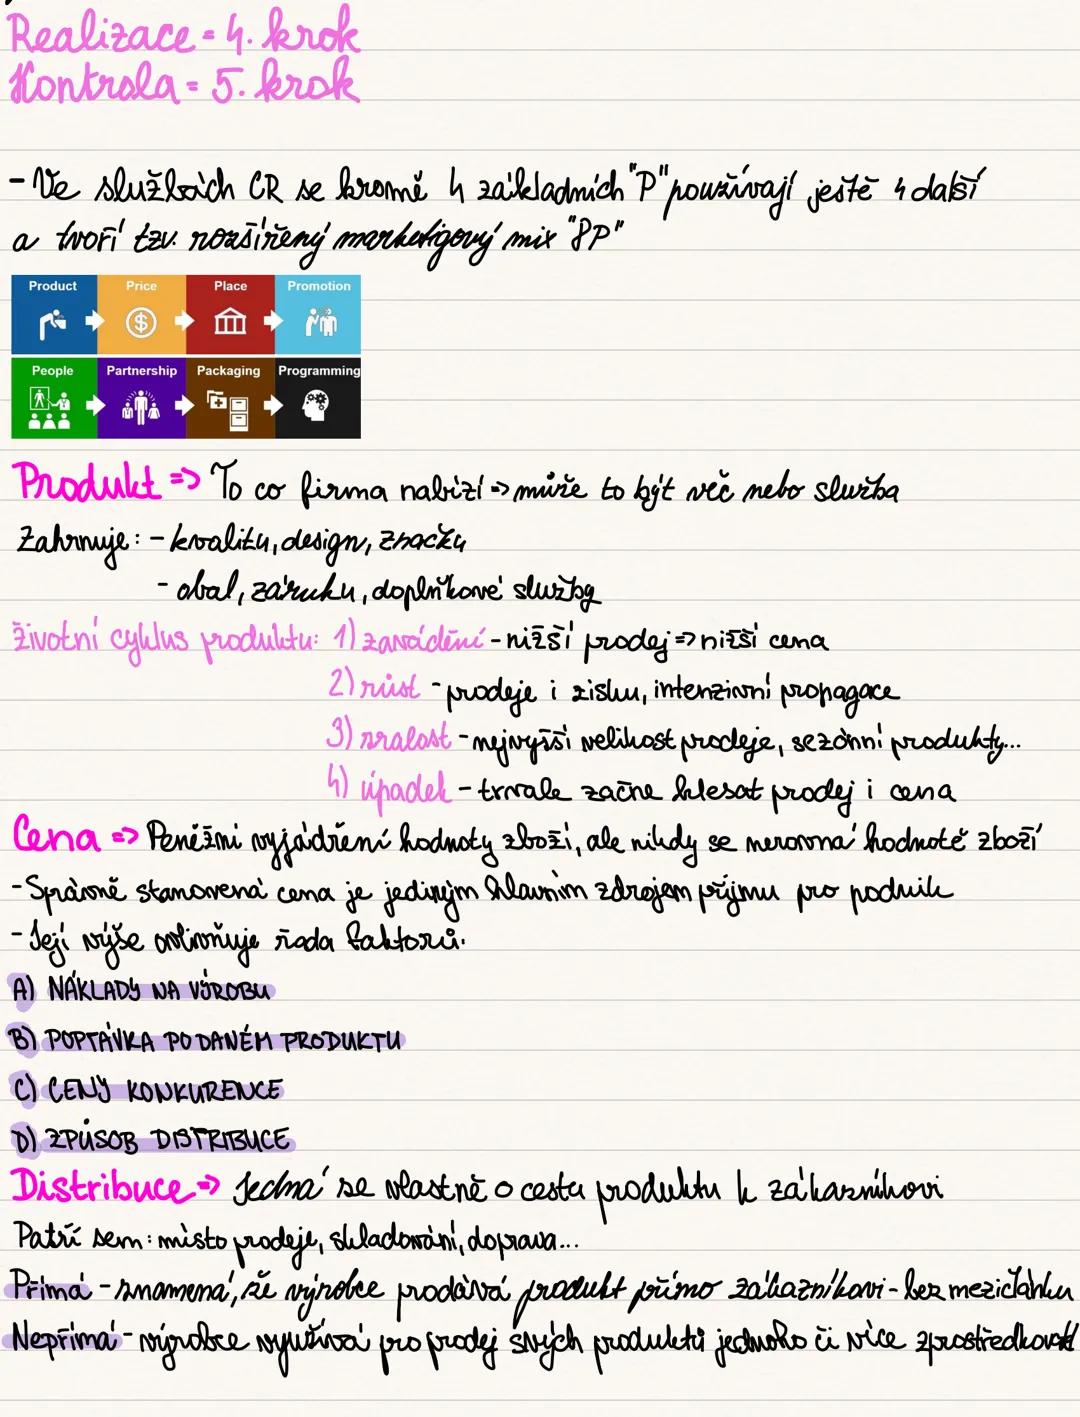 Realizace = 4. krok
Kontrola = 5. krok
- Ve službách CR se kromě 4 základních "P" používají ještě 4 další
a tvoří tzv. rozšířený marketigový mix "8P"
Product Price Place Promotion
People Partnership Packaging Programming
Produkt => To co firma nabízí => může to být věc nebo služba
Zahrnuje: - kvalitu, design, značku
- obal, záruku, doplňkové služby
životní cyklus produktu: 1) zavádění - nižší prodej => nižší cena
2) růst - prodeje i zisku, intenzivní propagace
3) zralost - nejvyšší velikost prodeje, sezónní produkty...
4) úpadek - trvale začne klesat prodej i cena
Cena => Peněžní vyjádření hodnoty zboží, ale nikdy se nerovná hodnotě zboží
- Správně stanovená cena je jediným hlavním zdrojem příjmu pro podnik
- Její výše ovlivňuje řada faktorů:
A) NÁKLADY NA VÝROBU
B) POPTÁVKA PO DANÉM PRODUKTU
C) CENY KONKURENCE
D) ZPŮSOB DISTRIBUCE
Distribuce => Jedná se vlastně o cestu produktu k zákazníkovi
Patří sem: místo prodeje, skladování, doprava...
Přímá - znamená, že výrobce prodává produkt přímo zákazníkovi - bez mezičlánku
Nepřímá - výrobce využívá pro prodej svých produktů jednoho či více